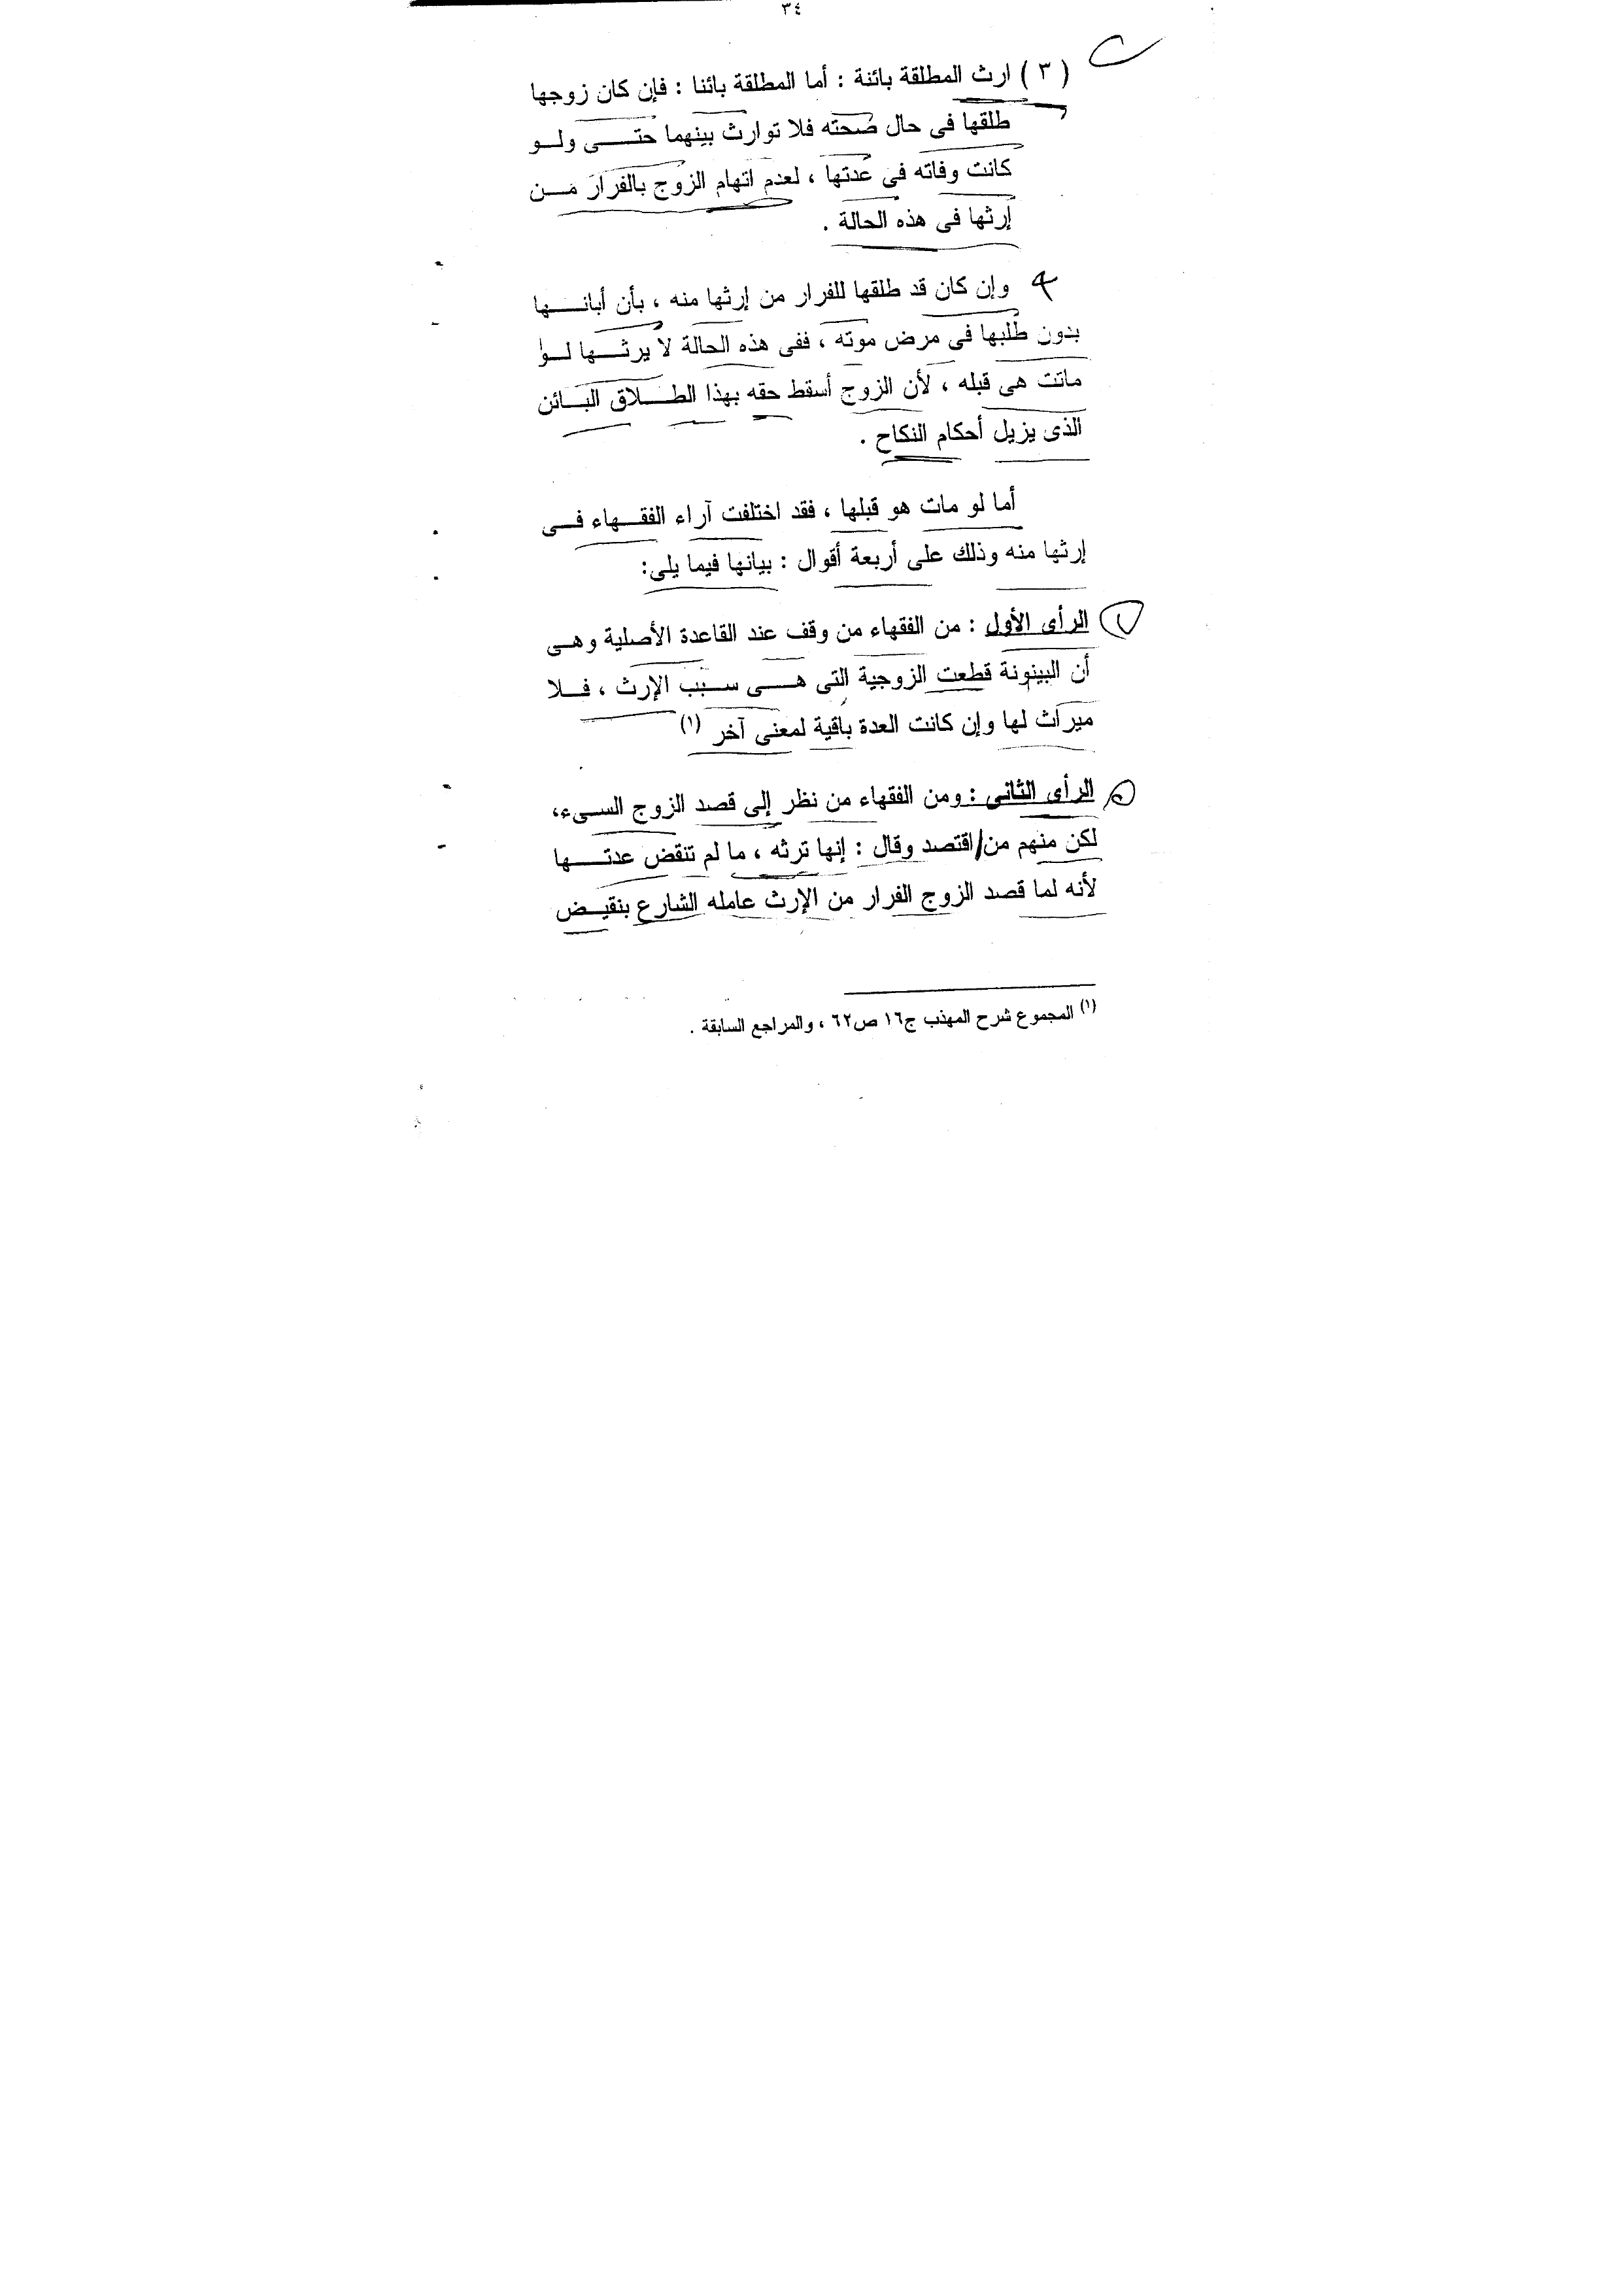 ٣٤
( ٣ ) ارث المطلقة بائنة : أما المطلقة بائنا : فإن كان زوجها
طلقها فى حال صحته فلا توارث بينهما حتــى ولــو
كانت وفاته فى عدتها ، لعدم اتهام الزوج بالفرار مــن
إرثها فى هذه الحالة .
وإن كان قد طلقها للفرار من إرثها منه ، بأن أبانــها
بدون طلبها فى مرض موته ، ففى هذه الحالة لا يرثــها لــو
ماتت هى قبله ، لأن الزوج أسقط حقه بهذا الطــلاق البــائن
الذى يزيل أحكام النكاح .
أما لو مات هو قبلها ، فقد اختلفت آراء الفقــهاء فــى
إرثها منه وذلك على أربعة أقوال : بيانها فيما يلى:
١ الرأى الأول : من الفقهاء من وقف عند القاعدة الأصلية وهــى
أن البينونة قطعت الزوجية التى هــى ســبب الإرث ، فــلا
ميراث لها وإن كانت العدة باقية لمعنى آخر (١)
الرأى الثانى : ومن الفقهاء من نظر إلى قصد الزوج السىء،
لكن منهم من اقتصد وقال : إنها ترثه ، ما لم تنقض عدتــها
لأنه لما قصد الزوج الفرار من الإرث عامله الشارع بنقيــض
(١) المجموع شرح المهذب ج١٦ ص٦٢ ، والمراجع السابقة .